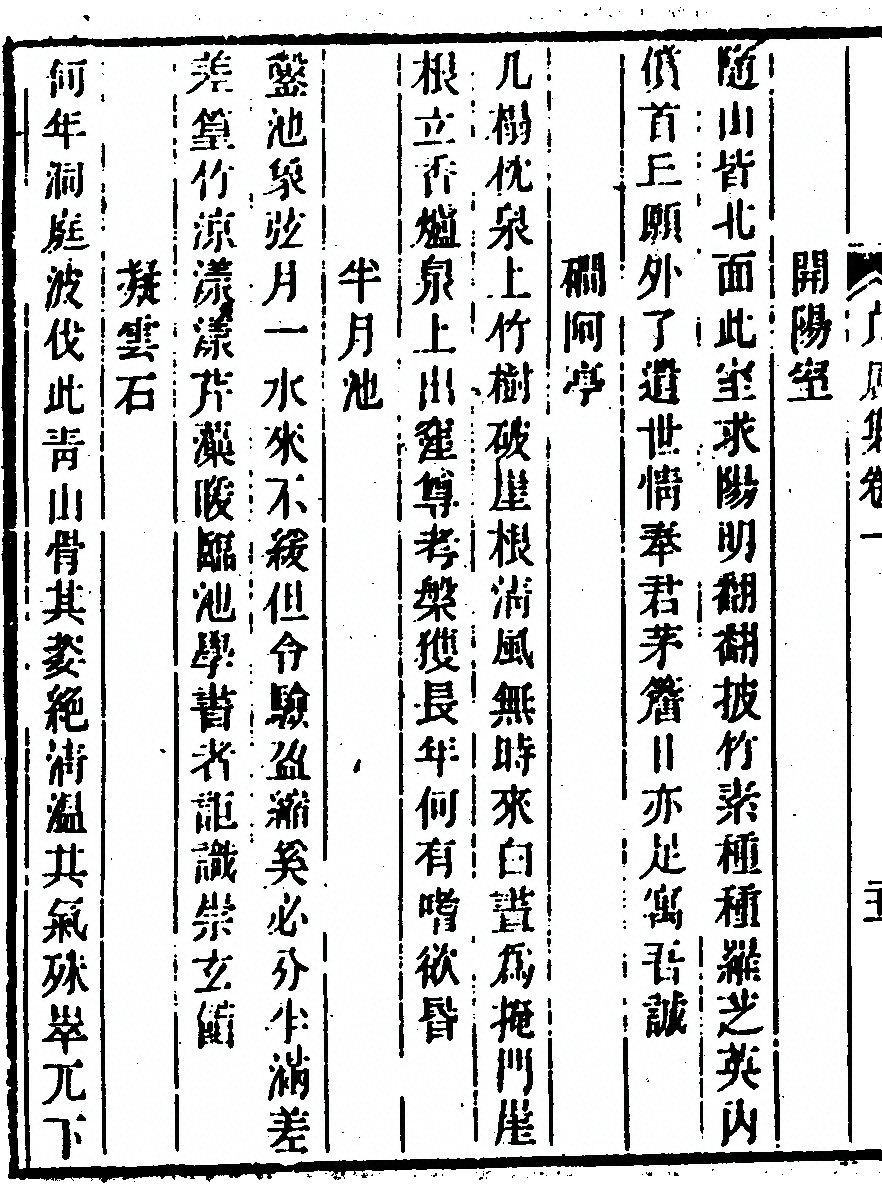 集卷一
開陽室
隨山皆北面此室求陽明翻翻披竹素種種羅芝英內
償首丘願外了遺世情奉君茅簷日亦足寓吾誠
磵阿亭
几榻枕泉上竹樹破崖根清風無時來白晝為掩門崖
根立香爐泉上出窪尊考槃獲長年何有嗜欲昏
半月池
鑿池象弦月一水來不緩但令驗盈縮奚必分半滿差
差篁竹涼漾漾芹藻暖臨池學書者詎識崇玄館
凝雲石
何年洞庭波伐此青山骨其姿絕清溫其氣殊崒兀下